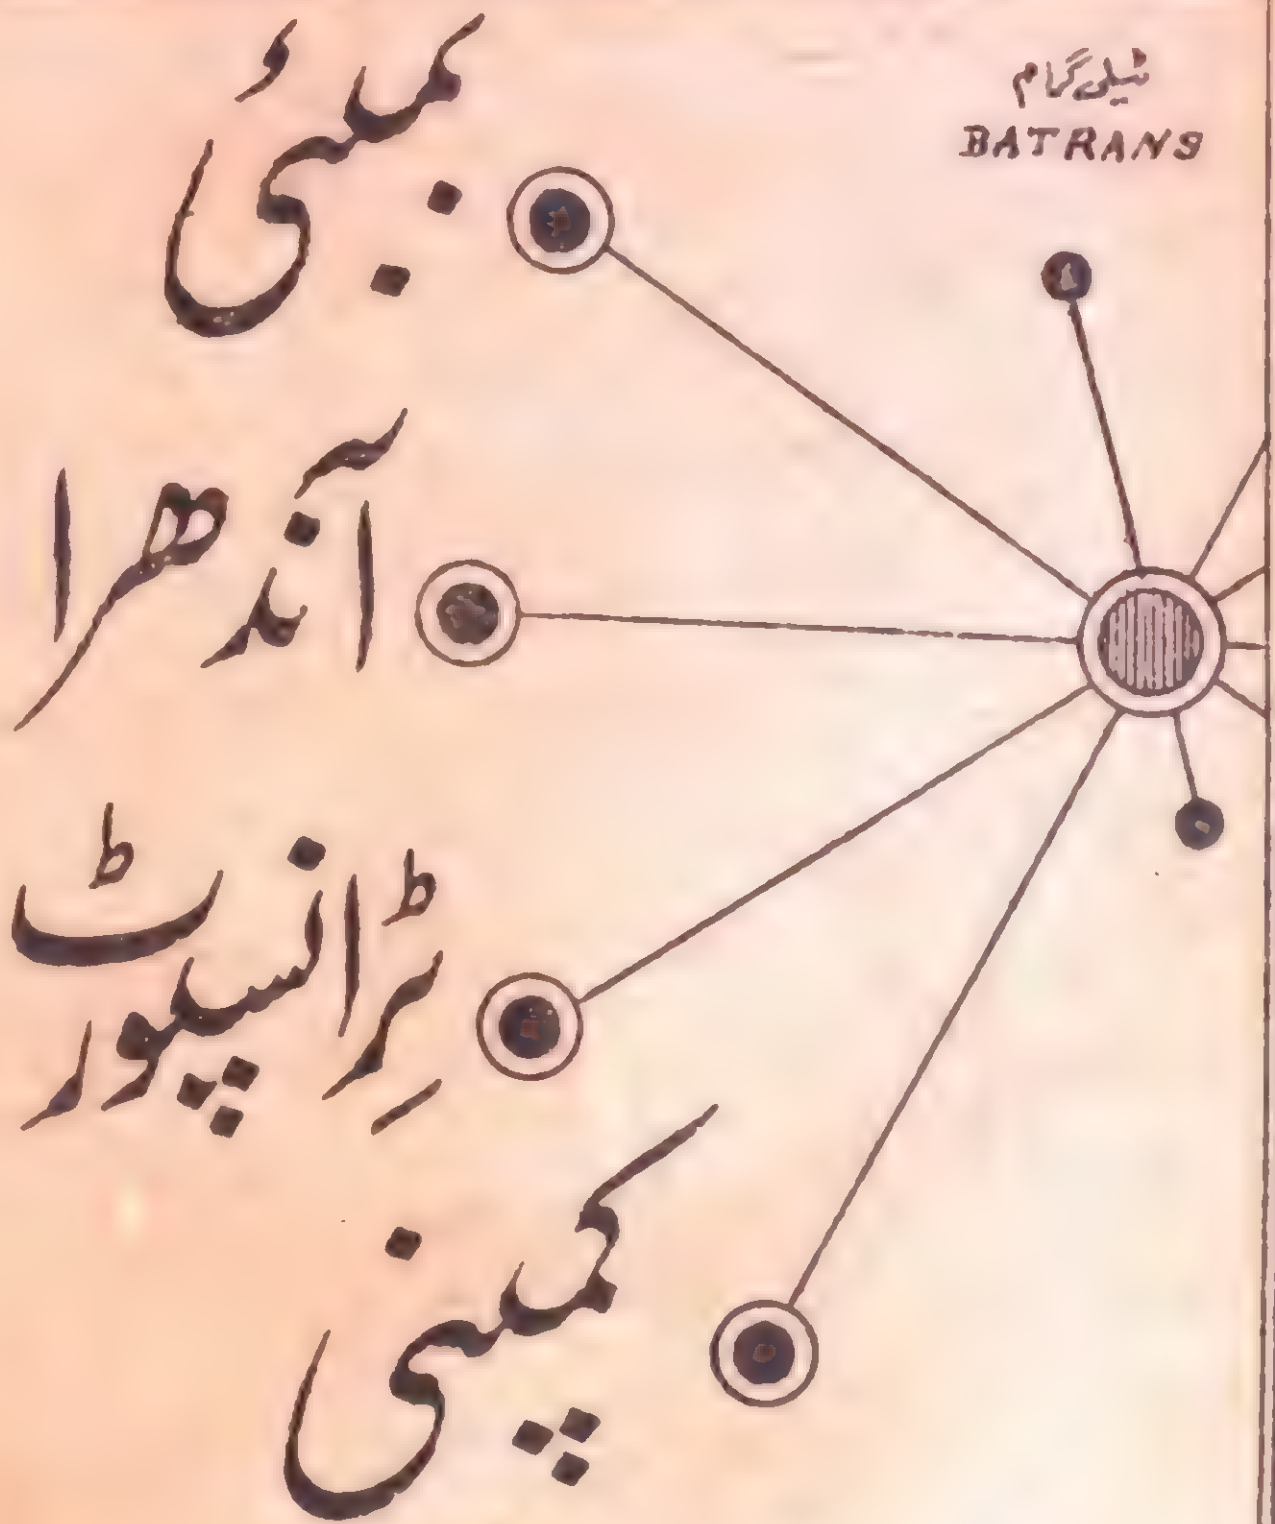 ٹیلی گرام
BATRANS
بمبئی
آندھرا
ٹرانسپورٹ
کمپنی